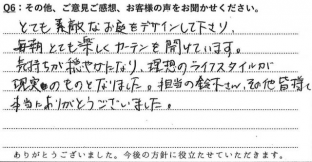 Q6：その他、ご意見ご感想、お客様の声をお聞かせください。
とても素敵なお庭をデザインして下さり、
毎朝とても楽しくカーテンを開けています。
気持ちが穏やかになり、理想のライフスタイルが
現実のものとなりました。担当の鈴木さん、その他皆様、
本当にありがとうございました。
ありがとうございました。今後の方針に役立たせていただきます。